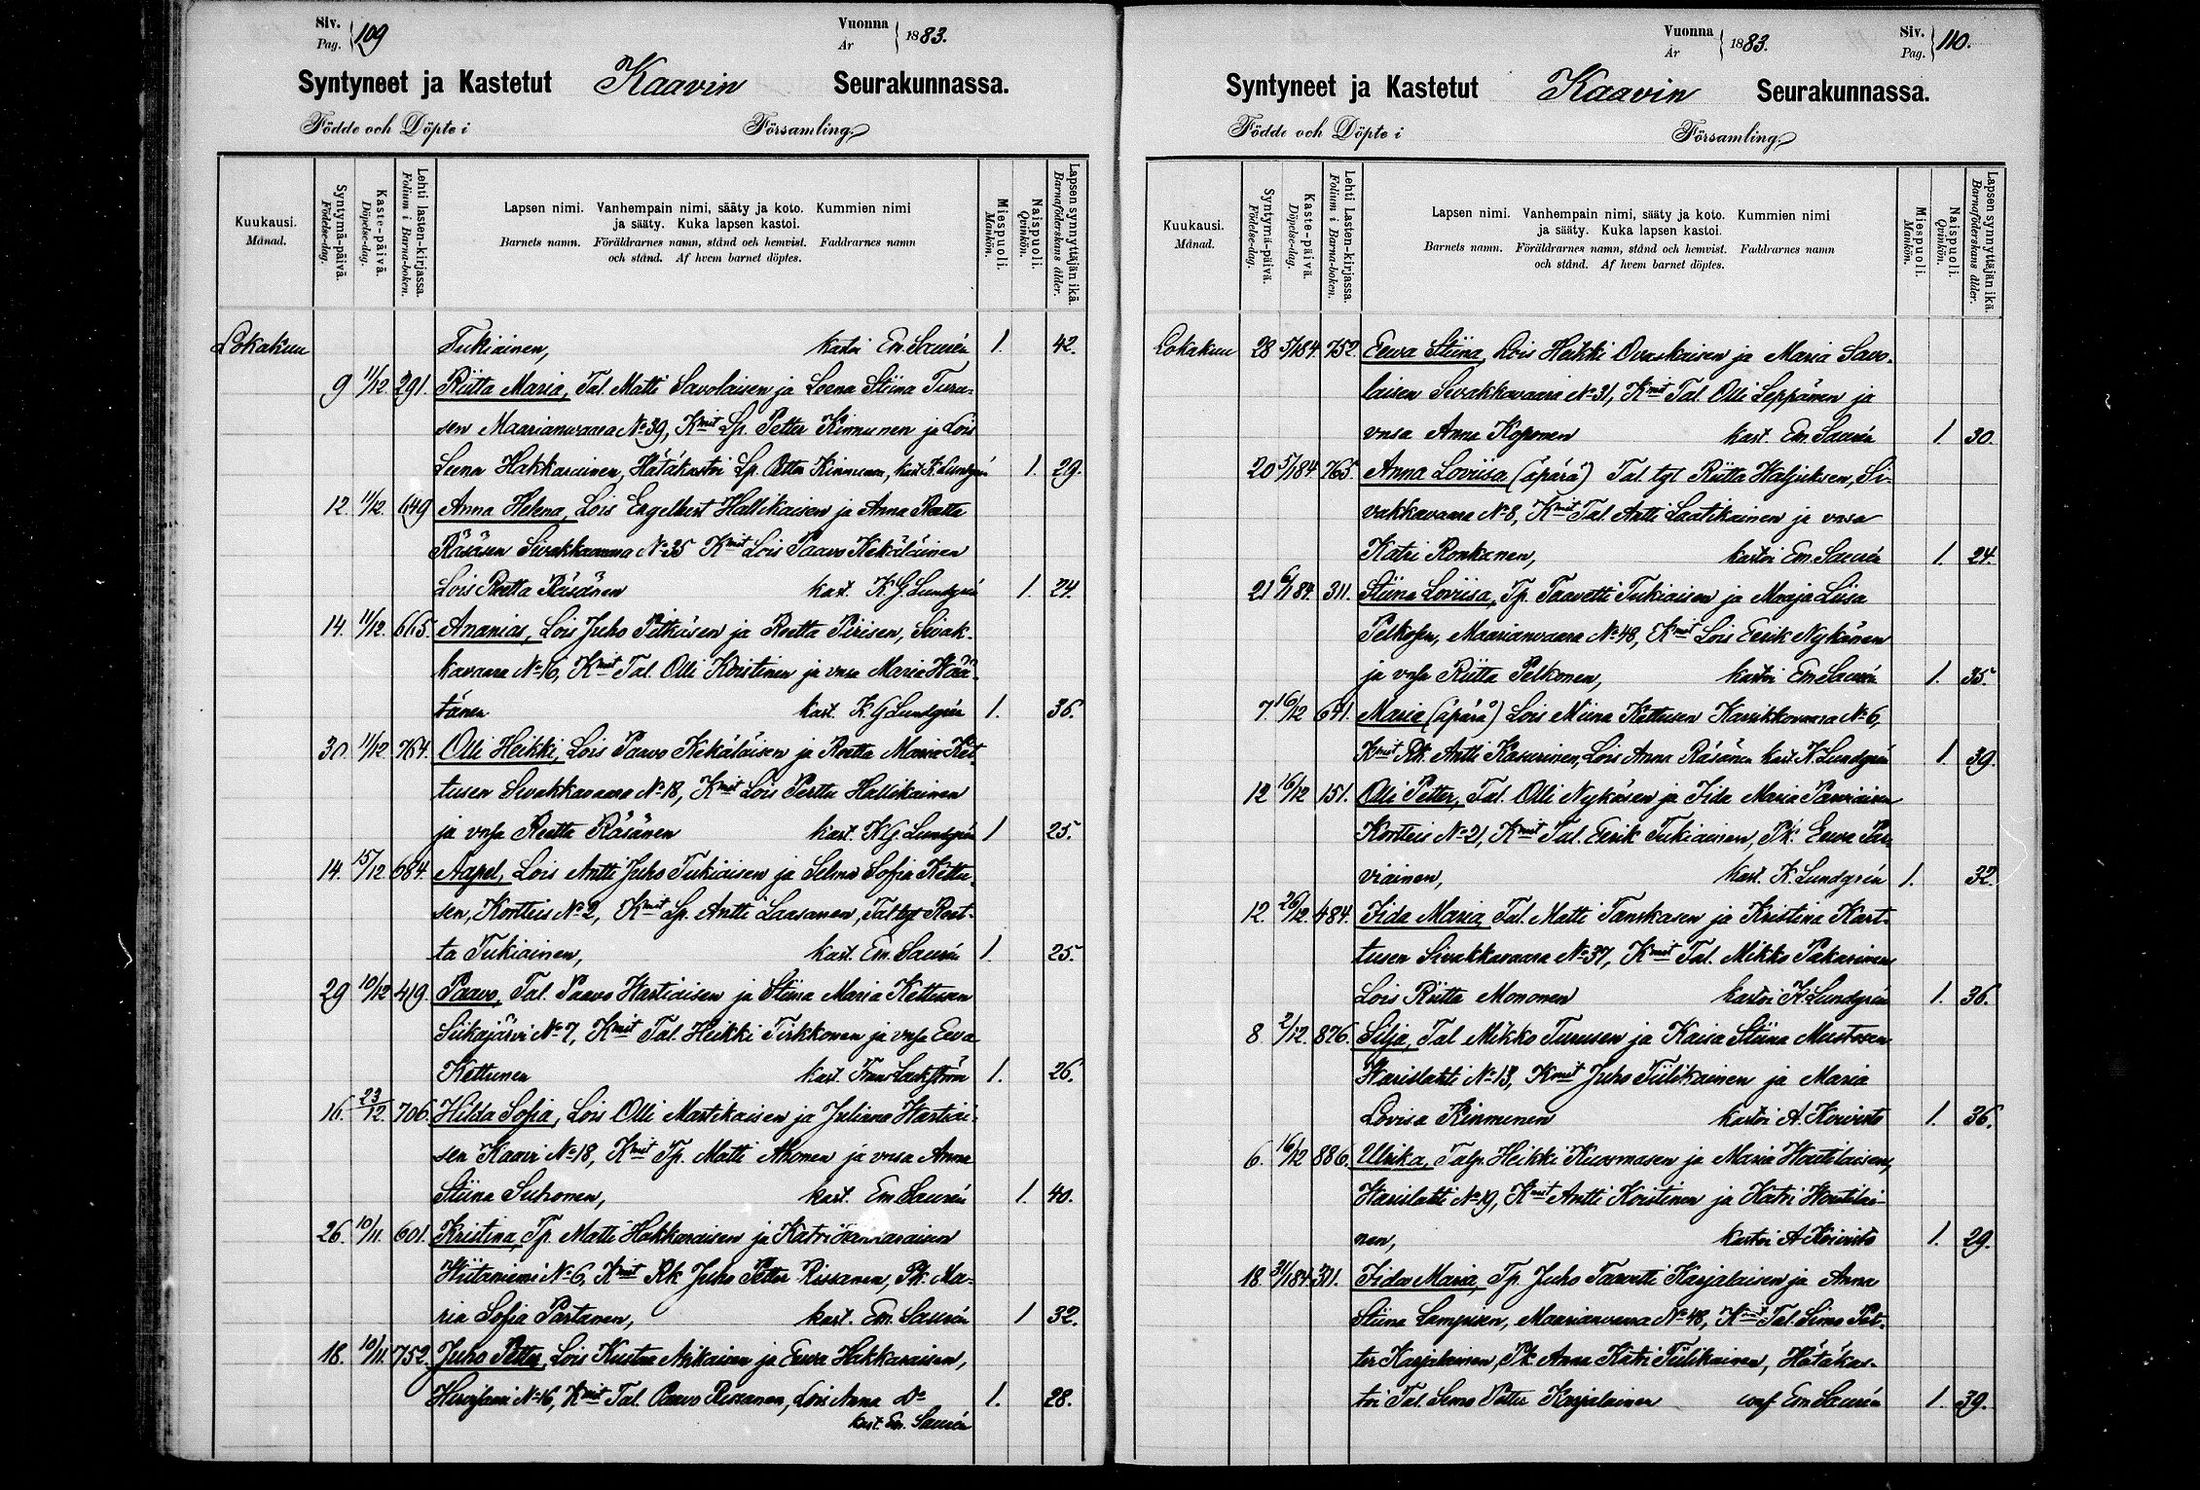 Siv.
Pag. 109
Vuonna
År 1883.
Syntyneet ja Kastetut Kaavin Seurakunnassa.
Födde och Döpte i Församling
Kuukausi.
Månad.
Syntymä-päivä.
Födelse-dag.
Kaste-päivä.
Döpelse-dag.
Lehti lasten-kirjassa.
Folium i Barna-boken.
Lapsen nimi. Vanhempain nimi, sääty ja koto. Kummien nimi
ja sääty. Kuka lapsen kastoi.
Barnets namn. Föräldrarnes namn, stånd och hemvist. Faddrarnes namn
och stånd. Af hvem barnet döptes.
Miespuoli.
Mankön.
Naispuoli.
Qvinkön.
Lapsen synnyttäjän ikä.
Barnaföderskans ålder.
Lokakuu Tukiainen, kastoi Em Saurén 1. 42.
9 11/12. 291. Riitta Maria, Tal. Matti Savolaisen ja Leena Stiina Turu-
sen Maarianvaara No 39, Kmit Lp. Petter Kinnunen ja Lois
Leena Hakkarainen, Hätäkastoi Lp. Petter Kinnunen, kast. K Lundgrén 1. 29.
12. 11/12. 649 Anna Helena, Lois Engelbert Hallikaisen ja Anna Reetta
Räsäsen Sivakkavaara No 35 Kmit Lois Paavo Kekäläinen
Lois Reetta Räsänen kast. K. G. Lundgrén 1. 24.
14. 11/12. 665. Ananias, Lois Juho Pitkäsen ja Reetta Piirisen, Sivak-
kavaara No 16, Kmit Tal. Olli Koistinen ja vnsa Maria Hää-
tänen kast. K. G Lundgrén 1. 36.
30. 11/12 764. Olli Heikki, Lois Paavo Kekäläisen ja Reetta Maria Ket-
tusen Sivakkavaara No 18, Kmit Lois Perttu Hallikainen
ja vnsa Reetta Räsänen kast. K G. Lundgrén 1 25.
14. 15/12 684. Aapel, Lois Antti Juho Tukiaisen ja Selma Sofia Kettu-
sen, Kortteis No 2, Kmit Lp. Antti Laasanen, Tal tyt Reet-
ta Tukiainen, kast. Em. Saurén 1. 25.
29 10/12 419. Paavo, Tal. Paavo Hartiaisen ja Stiina Maria Kettusen
Siikajärvi No 7, Kmit Tal. Heikki Tirkkonen ja vnsa Eeva
Kettunen kast. Frans Lackström 1. 26.
16. 23/12. 706. Hilda Sofia, Lois Olli Martikaisen ja Juliana Hartiai-
sen Kaavi No 18, Kmit Tp. Matti Ahonen ja vnsa Anna
Stiina Suhonen, kast. Em Saurén 1. 40.
26. 10/11. 601. Kristina, Tp. Matti Hakkaraisen ja Katri
Niitaniemi No 6, Kmit Rk Juho Petter Rissanen, Pk. Ma-
ria Sofia Partanen, kast. Em. Saurén 1 32.
18. 10/11. 752. Juho Petter, Lois Kustaa Miikaisen ja Eewa Hakkaraisen,
No 16, Kmit Tal. Paavo Rissanen, Lois Anna Do 1. 28.
kast. Em. Saurén
Vuonna
År 1883.
Siv.
Pag. 110.
Syntyneet ja Kastetut Kaavin Seurakunnassa.
Födde och Döpte i Församling
Kuukausi.
Månad.
Syntymä-päivä.
Födelse-dag.
Kaste-päivä.
Döpelse-dag.
Lehti Lasten-kirjassa.
Folium i Barna-boken.
Lapsen nimi. Vanhempain nimi, sääty ja koto. Kummien nimi
ja sääty. Kuka lapsen kastoi.
Barnets namn. Föräldrarnes namn, stånd och hemvist. Faddrarnes namn
och stånd. Af hvem barnet döptes.
Miespuoli.
Mankön.
Naispuoli.
Qvinkön.
Lapsen synnyttäjän ikä.
Barnaföderskans ålder.
Lokakuu 28 5/1 84. 752. Eewa Stiina, Lois Heikki Ovaskaisen ja Maria Savo-
laisen Sivakkavaara No 31, Kmit Tal. Olli Leppänen ja
vnsa Anna Koponen kast. Em Saurén 1. 30.
20 5/1 84. 765. Anna Loviisa (äpärä) Tal. tyt Riitta Haljuksen, Si-
vakkavaara No 8, Kmit Tal. Antti Laatikainen ja vnsa
Katri Ronkanen, kastoi Em. Saurén 1. 24.
21 6/1 84. 311. Stiina Loviisa, Tp. Taavetti Tukiaisen ja Maaja Liisa
Pelkosen, Maarianvaara No 48, Kmit Lois Eerik Nykänen
ja vnsa Riitta Pelkonen, kastoi Em Saurén 1. 35.
7. 16/12 641. Maria (äpärä) Lois Miina Kettusen Kaarikkovaara No 6,
Kmit Rk. Antti Kasurinen, Lois Anna Räsänen kast. K. Lundgrén 1. 39.
12 16/12 151. Olli Petter, Tal. Olli Nykäsen ja Iida Maria Parviaisen
Kortteis No 21, Kmit Tal. Eerik Tukiainen, Pk. Eewa Par-
viainen, kast. K. Lundgrén 1. 32.
12. 26/12. 484. Iida Maria, Tal. Matti Tanskasen ja Kristina Kart-
tusen Sivakkavaara No 37, Kmit Tal. Mikko Pakarinen
Lois Riitta Mononen kastoi K. Lundgrén 1. 36.
8. 2/12. 876. Silja, Tal Mikko Turusen ja Kaisa Stiina Mustosen
Harislahti No 13, Kmit Juho Tiilikainen ja Maria
Lovisa Kinnunen kastoi A. Koivisto 1. 36.
6. 16/12 886. Ulrika, Talp. Heikki Kuosmasen ja Maria Hautilaisen,
Harislahti No 19, Kmit Antti Koistinen ja Katri Hautilai-
nen, kastoi A Koivisto 1. 29.
18. 31/1 84. 311. Iida Maria, Tp. Juho Taavetti Karjalaisen ja Anna
Stiina Lampisen, Maarianvaara No 48, Kmit Tal. Simo Pet-
ter Karjalainen, Pk Anna Katri Tiilikainen, Hätäkas-
toi Tal. Simo Petter Karjalainen conf. Em Saurén 1. 39.